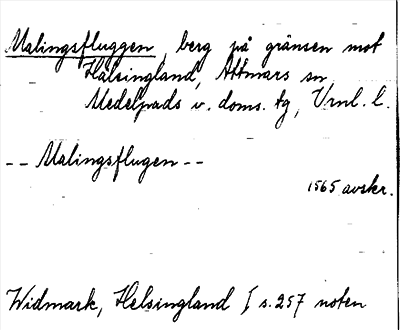 Malingsfluggen, berg på gränsen mot
Hälsingland, Attmars sn,
Medelpads v. doms. tg, Vrnl. l.
-- Malingsflugen --
1565 avskr.
Widmark, Helsingland I s. 257 noten